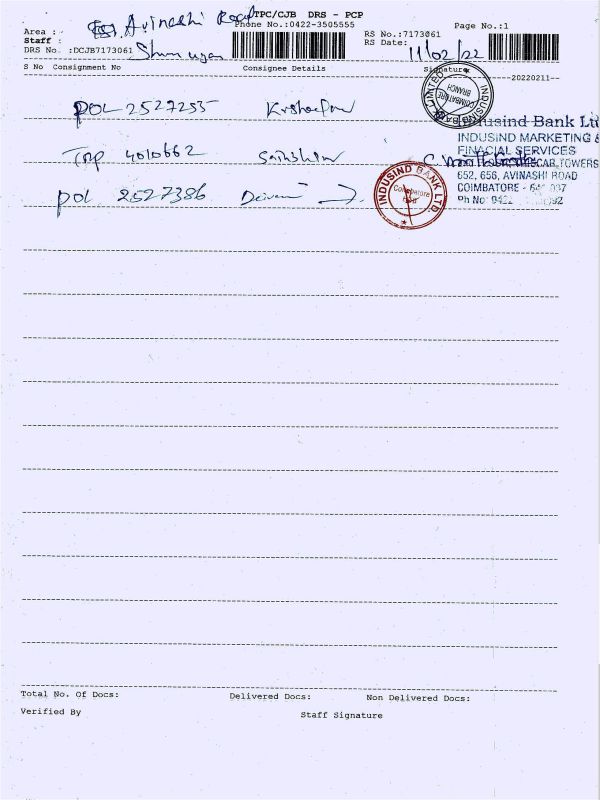 TPC/CJB DRS - PCP
Area : Avinashi Road Phone No.:0422-3505555 Page No.:1
Staff : RS No.:7173061
DRS No. :DCJB7173061 RS Date: 11/02/22
S No Consignment No Consignee Details Signature
20220211
POL 2527255
4010662
POL 2527386
INDUSIND BANK LIMITED
COIMBATORE BRANCH
Indusind Bank Ltd
INDUSIND MARKETING &
FINANCIAL SERVICES
TOWERS
652, 656, AVINASHI ROAD
COIMBATORE -
Ph No
INDUSIND BANK LTD.
Coimbatore
Total No. Of Docs: Delivered Docs: Non Delivered Docs:
Verified By Staff Signature